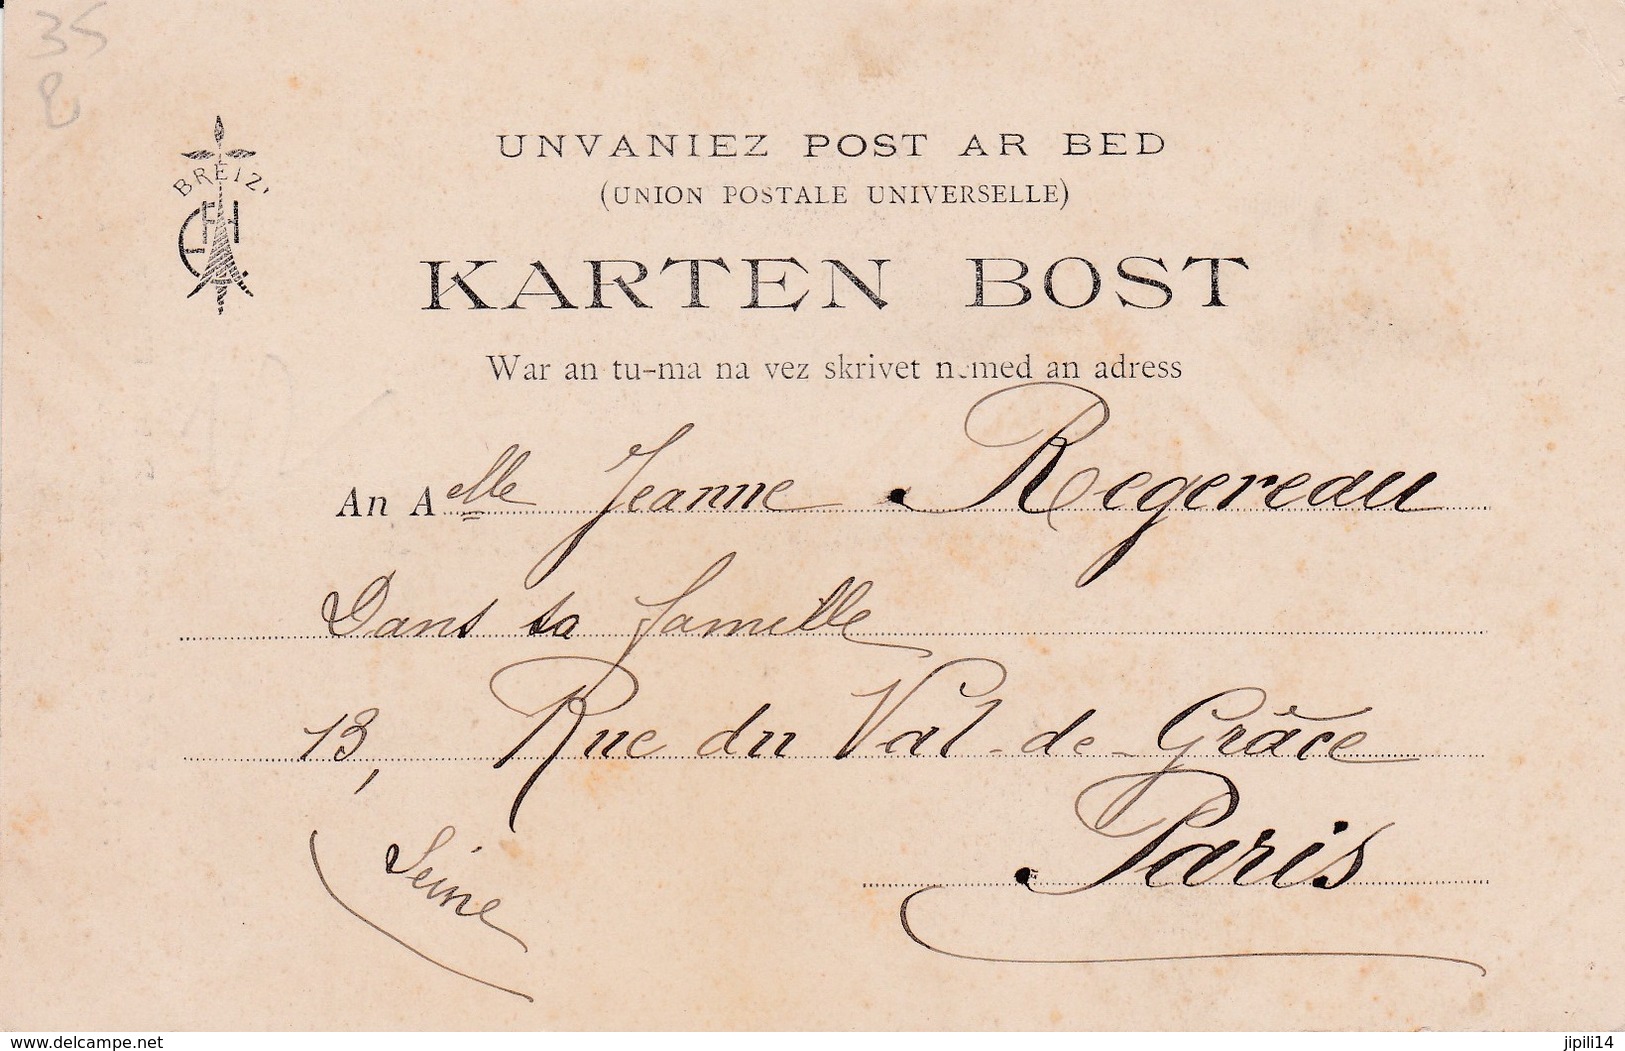 35
BREIZ'
UNVANIEZ POST AR BED
(UNION POSTALE UNIVERSELLE)
KARTEN BOST
War an tu-ma na vez skrivet nemed an adress
An Aelle Jeanne Regereau
Dans sa famille
13, Rue du Val-de-Grâce
Paris
Seine
www.delcampe.net
jipili14